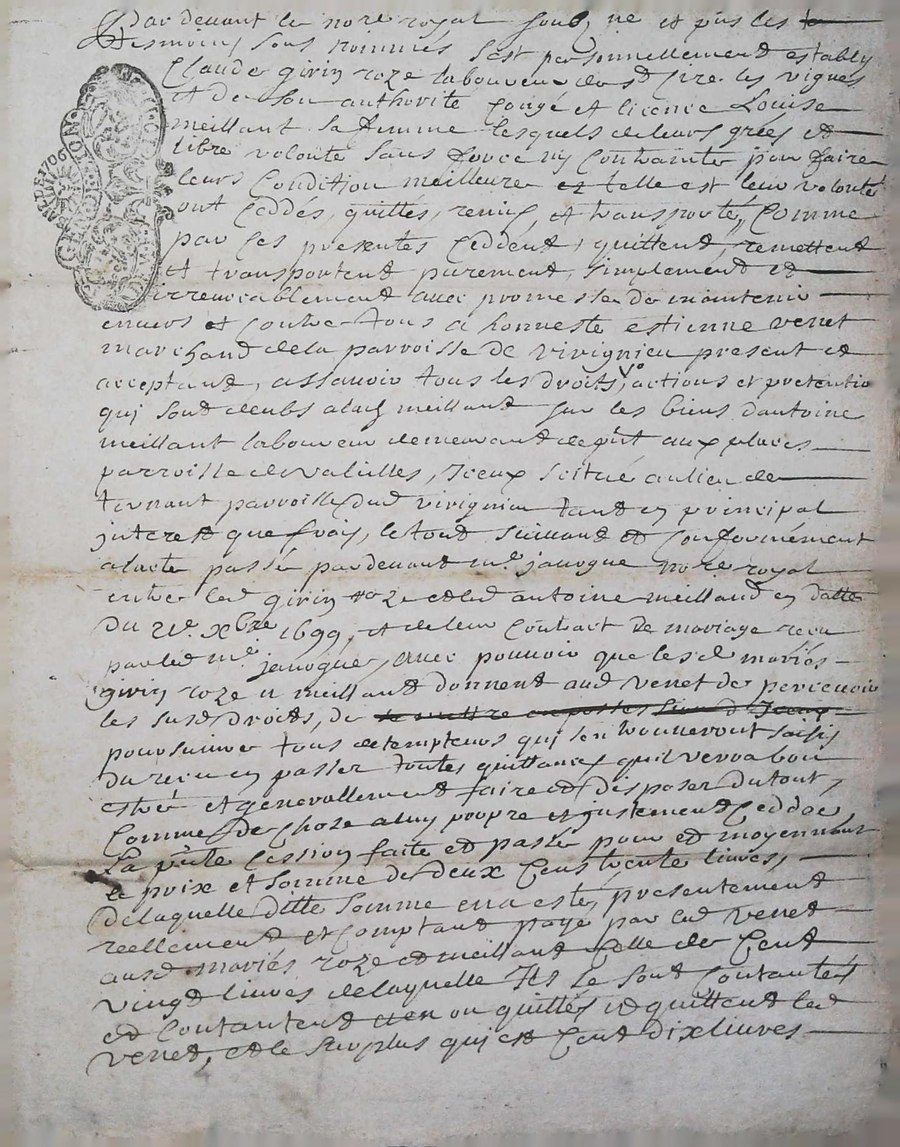 Pardevant le nore royal soubz ne et pns les
tesmoins sous nommés sest personnellement estably
Claude girin roze laboureur de st pre les vignes
et de son authorite Congé et licence Louise
meillant sa femme lesquels de leurs grées et
libre volonté sans force ny Contrainte pour faire
leurs Condition meilleure et telle est leur volonté
ont Ceddés, quittés, remis, et transporté, Comme
par Ces presentes Ceddent, quittent, remettent
et transportent purement, simplement et
irrevocablement avec promesse de maintenir
envers et Contre tous a honneste estienne venet
marchand de la parroisse de virignieu present et
acceptant, assavoir tous les droits, vo actions et pretentio
qui sont deubs alad meillant sur les biens dantoine
meillant laboureur demeurant aux places
parroisse de valeilles, Iceux scitué au lieu de
parroisse dud virignieu tant en principal
interest que frais, le tout suivant et Conformément
alacte passée pardevant me janogue nore royal
entre led girin roze et led antoine meilland en datte
du Xbre 1699, et de leur Contract de mariage receu
par led me janogue, avec pouvoir que lesd mariés
girin roze et meillant donnent aud venet de percevoir
les susd droits, de
poursuivre tous detempteurs qui sen trouveront saisis
du receu en passer toutes quittances quil verra bon
estre et generallement faire et disposer du tout,
Comme de Choze a luy propre et justement Ceddée
La pnte Cession faite et passée pour et moyennant
le prix et somme de deux Cens trente livres,
de laquelle ditte somme en a estés presentement
reellement et Comptant payé par led venet
ausd mariés roze et meillant Celle de Cent
vingt livres de laquelle Ils se sont Contantés
et Contantent et en on quittés et quittent led
venet, et le surplus qui est Cent dix livres
GENERALITE DE LYON